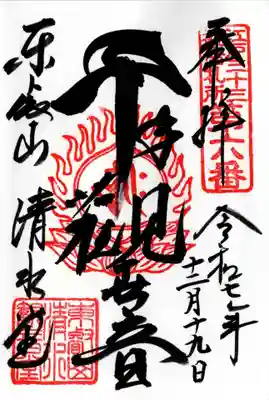 奉拝
令和七年
十二月十九日
千手
観世音
東叡山 清水堂
第六番
東叡山
清水
観音堂